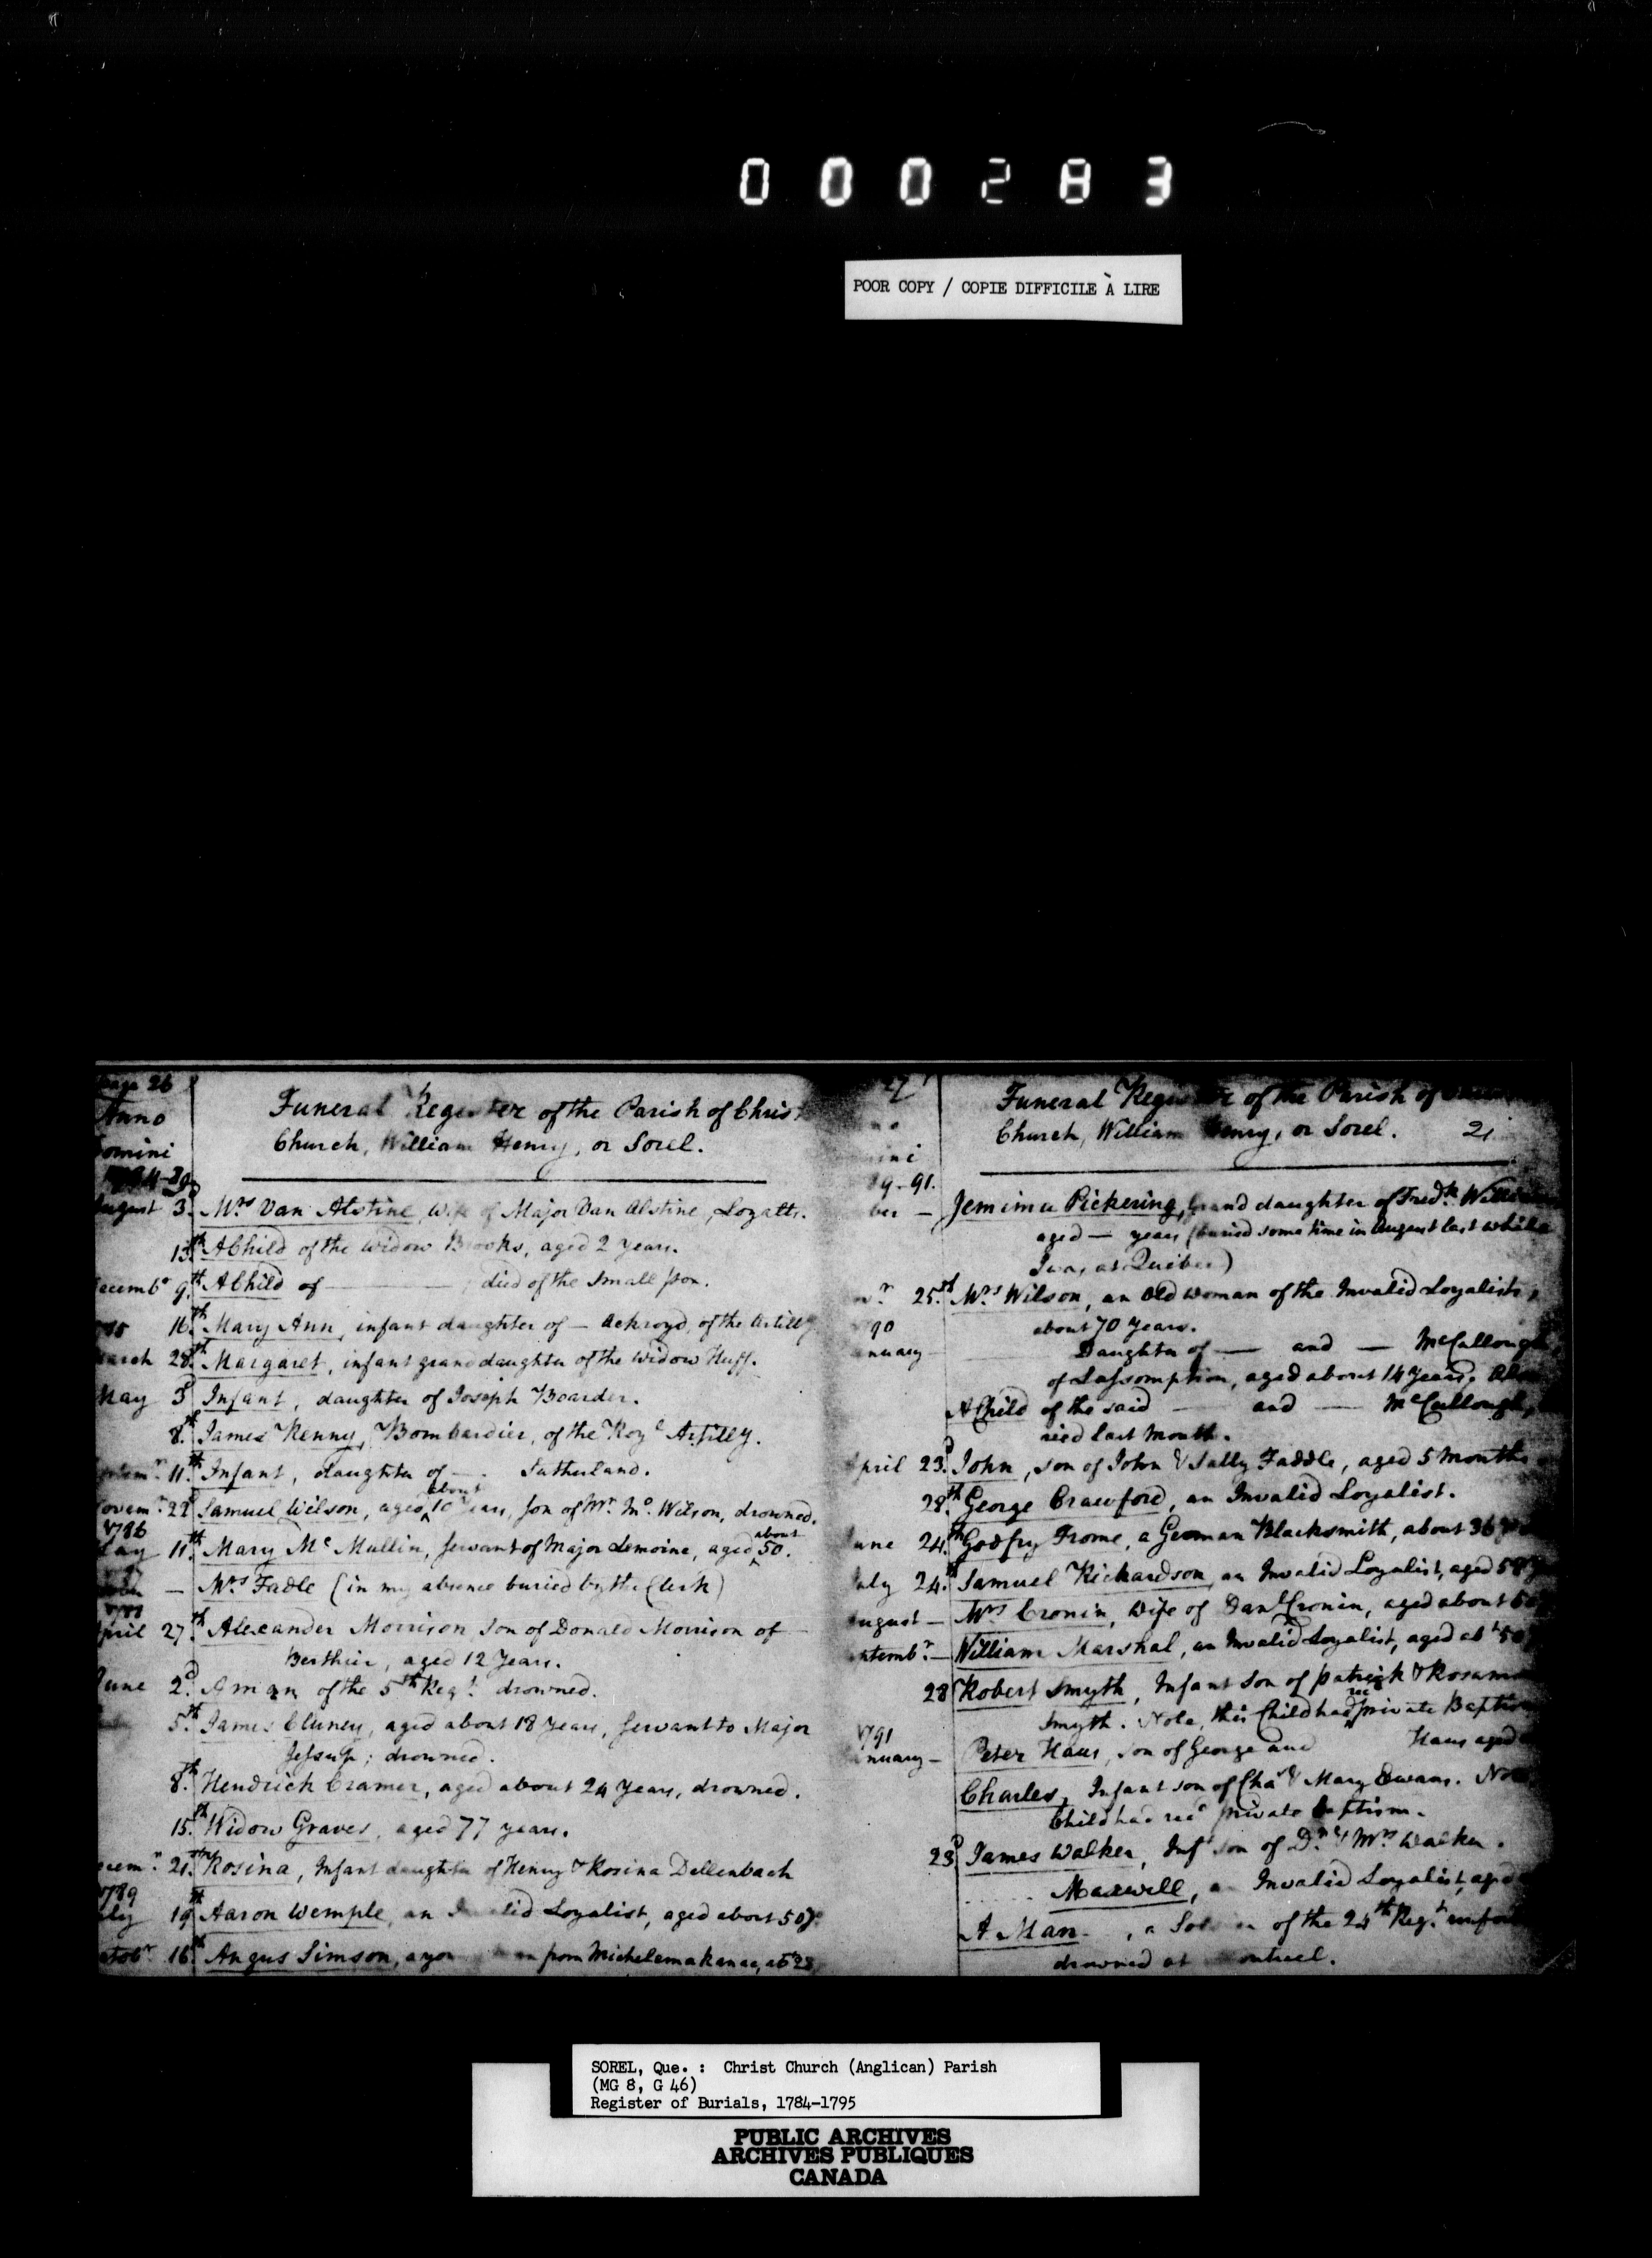 000283
POOR COPY / COPIE DIFFICILE À LIRE
Page 26
Anno
Domini
1784-89
Funeral Register of the Parish of Christ
Church, William Henry, or Sorel.
August 3d. Mrs Van Alstine, Wife of Major Van Alstine, Loyalts.
13th A Child of the Widow Brooks, aged 2 Years.
Decembr 9th. A Child of ——— ; died of the Small pox.
16th. Mary Ann, infant daughter of — Ackroyd, of the Artilly
March 28th. Margaret, infant granddaughter of the Widow Huff.
May 3d Infant, daughter of Joseph Boarder.
8th. James Kenny, Bombardier, of the Royl Artilly.
11th. Infant, daughter of — . Sutherland.
Novemr. 22d Samuel Wilson, aged about 10 Years, son of Mr. Mo. Wilson, drowned.
1786
May 11th. Mary Mc Mullin, servant of Major Lemoine, aged about 50.
— Mrs Fadle (in my absence buried by the Clerk)
April 27th. Alexander Morrison, son of Donald Morrison of
Berthier, aged 12 Years.
June 2d. A man of the 5th Regt. drowned.
5th. James Cluney, aged about 18 Years, servant to Major
Jessup; drowned.
8th. Hendrick Cramer, aged about 24 Years, drowned.
15th. Widow Graves, aged 77 years.
21st. Rosina, Infant daughter of Henry & Rosina Dellenbach
1789
July 19th Aaron Wemple, an Invalid Loyalist, aged about 50 y
Octobr 16th. Angus Simson, a from Michelemakanac, abt 28
27
Funeral Register of the Parish of
Church, William Henry, or Sorel. 21
89-91.
— Jemima Pickering, Grand daughter of Fredk.
aged — years (buried some time in August last while
I was at Quebec)
25th. Mrs Wilson, an Old Woman of the Invalid Loyalists,
about 70 Years.
1790
January — Daughter of — and — McCullough,
of Lassomption, aged about 14 Years. Also
A Child of the said — and — McCullough,
died last Month.
April 23d. John, son of John & Sally Faddle, aged 5 Months
28th. George Crawford, an Invalid Loyalist.
June 24th. Godfry Frome, a German Blacksmith, about 36
July 24th. Samuel Richardson, an Invalid Loyalist, aged 58
August — Mrs Cronin, Wife of Danl Cronin, aged about
Septembr. — William Marshal, an Invalid Loyalist, aged abt 50
28 Robert Smyth, Infant Son of Patrick &
Smyth. Note, this Child had rec private Baptism
1791
January — Peter Haus, son of George and Haus aged
Charles, Infant son of Chas & Mary Ewans. Note
Child had recd private baptism.
23d James Walker, Inft son of Dr. & Mrs Walker.
..... Maxwell, an Invalid Loyalist, aged
A Man , a Soldier of the 24th Regt.
drowned at Montreal.
SOREL, Que. : Christ Church (Anglican) Parish
(MG 8, G 46)
Register of Burials, 1784-1795
PUBLIC ARCHIVES
ARCHIVES PUBLIQUES
CANADA